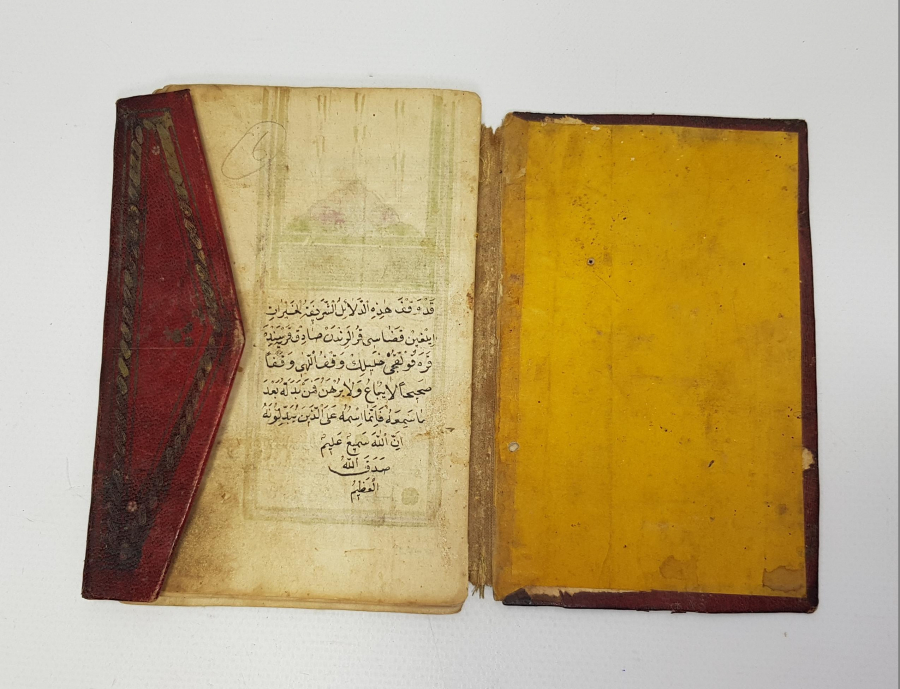 قَدْ وَقَفَ هٰذِهِ الدَّلَايِلُ الشَّرِيفَةُ الْخَيْرَاتِ
ايلغين قضاسى قرالرندن صادق قريه‌سنده
قره خليلك وَقْفَا اللهى وَقْفًا
صَحِيحًا لَا يُبَاعُ وَلَا يُرْهَنُ فَمَنْ بَدَّلَهُ بَعْدَ
مَا سَمِعَهُ فَاِنَّمَا اِثْمُهُ عَلَى الَّذِينَ يُبَدِّلُونَهُ
اِنَّ اللهَ سَمِيعٌ عَلِيمٌ
صَدَقَ اللهُ
الْعَظِيمُ